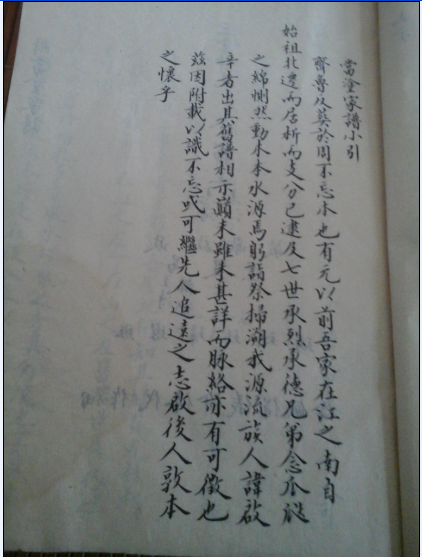 當塗家譜小引
齊魯反葬於周不忘本也有元以前吾家在江之南自
始祖北遷而居析而支分已逮及七世承烈承德兄弟念瓜瓞
之綿惻然動木本水源焉躬詣祭掃溯我源流族人諱啟
辛者出其舊譜相示巔末雖未甚詳而脉絡亦有可徵也
茲因附載以識不忘或可繼先人追遠之志啟後人敦本
之懷乎